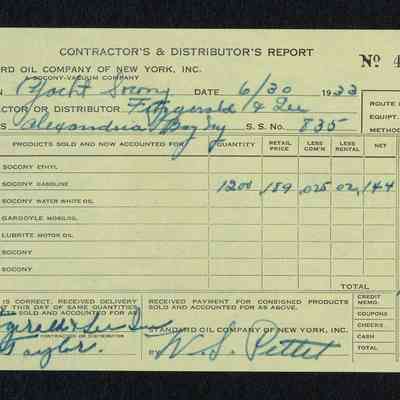 CONTRACTOR'S & DISTRIBUTOR'S REPORT
Nº 4
ARD OIL COMPANY OF NEW YORK, INC.
A SOCONY-VACUUM COMPANY
N Yacht Socony DATE 6/30 1933
ACTOR OR DISTRIBUTOR Fitzgerald & Lee
Alexandria Bay Ny S. S. No. 835
ROUTE
EQUIPT.
METHOD
PRODUCTS SOLD AND NOW ACCOUNTED FOR QUANTITY RETAIL PRICE LESS COM'N LESS RENTAL NET
SOCONY ETHYL
SOCONY GASOLINE 1200 .189 .025 .02 .144
SOCONY WATER WHITE OIL
GARGOYLE MOBILOIL
LUBRITE MOTOR OIL
SOCONY
SOCONY
TOTAL
IS CORRECT, RECEIVED DELIVERY
T THIS DAY OF SAME QUANTITIES
TS SOLD AND ACCOUNTED FOR
RECEIVED PAYMENT FOR CONSIGNED PRODUCTS
SOLD AND ACCOUNTED FOR AS ABOVE.
CREDIT MEMO.
COUPONS
CHECKS
CASH
TOTAL
gerald & Lee
CONTRACTOR OR DISTRIBUTOR
Taylor.
STANDARD OIL COMPANY OF NEW YORK, INC.
BY W. S. Pettit